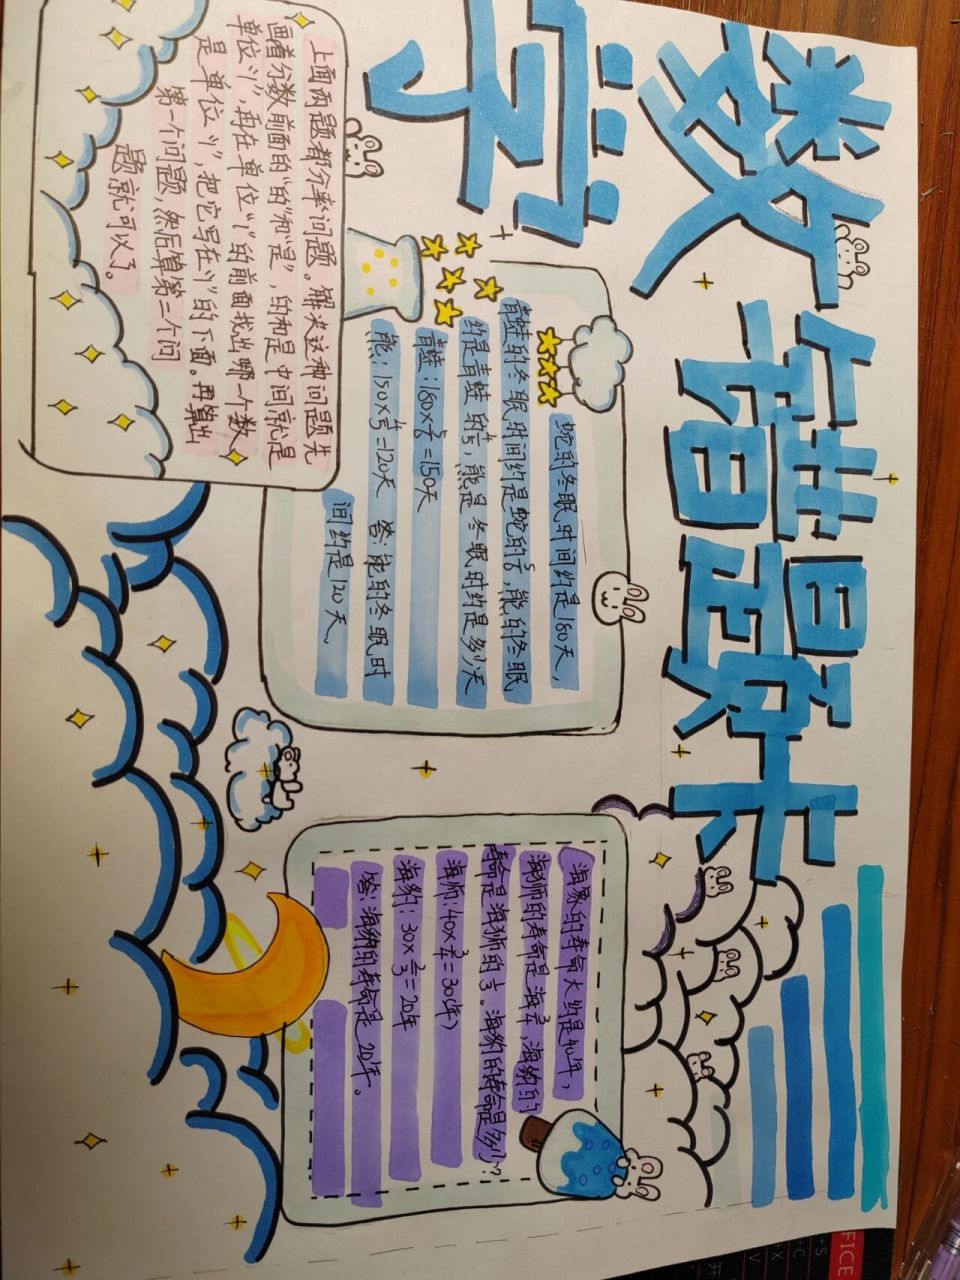 数学
错题卡
蛇的冬眠时间约是180天，
青蛙的冬眠时间约是蛇的5/6，熊的冬眠
约是青蛙的4/5，熊是冬眠时约是多少天
青蛙：180×5/6=150天
熊：150×4/5=120天 答：熊的冬眠时
间约是120天，
上面两题都分率问题。解决这种问题先
画着分数前面的“的”和“是”，的和是中间就是
单位“1”，再在单位“1”的前面找出哪一个数
是单位“1”，把它写在“1”的下面。再算出
第一个问题，然后算第二个问
题就可以了。
海象的寿命大约是40年，
海狮的寿命是海3/4，海豹的
寿命是海狮的2/3。海豹的寿命是多少？
海狮：40×3/4=30(年)
海豹：30×2/3=20年
答：海豹的寿命是20年。
FICE
+S
+C
+X
+V